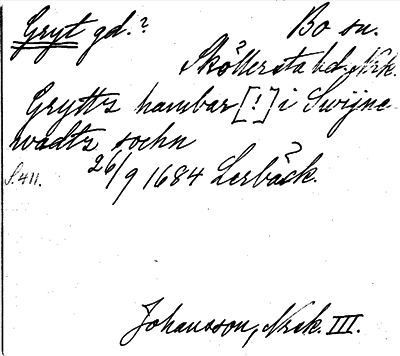 Gryt gd.? Bo sn.
Sköllersta hd. Nrk.
Grytts hambar [!] i Swijne
wadts sochn
S. 411. 26/9 1684 Lerbäck.
Johansson, Nrk. III.